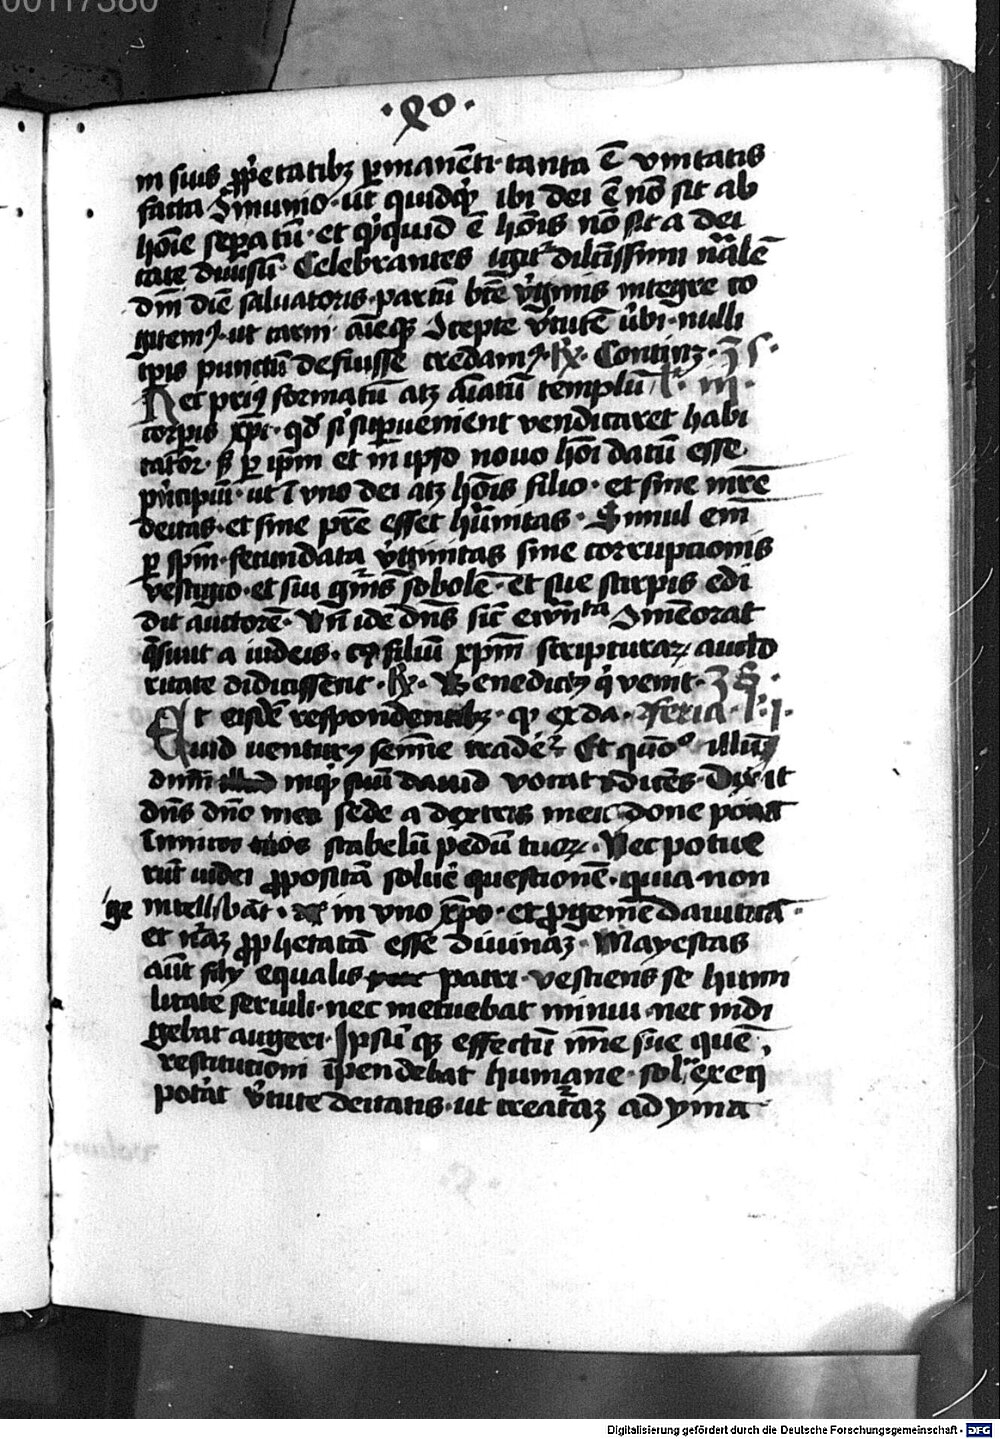 00117380
·xo·
in suis ꝓpͥetatibꝫ ꝑmanēti · tanta ē vnitatis
facta ꝯmunio · ut quidꝙͥd ibi dei ē nō sit ab
hoīe seꝑatū · et qͥꝙuid ē hoīs nō sit a dei
tate diuisū · Celebrantes igit᷑ dilc̄issimi nᷓlē
dn̄i diē saluatoris · partū btē vͥginis integre co
gitemꝰ · ut carni aīeqꝫ ꝯcepte vͥtutē ūbi · nulli
tꝑis punctū defuisse credamꝰ · ꝶ · Continꝫ · ꝫ s ·
Nec priꝰ formatū atꝫ aīatū templū l᷑ · iij ·
corꝑis xp̄i · qd̄ sͥ suꝑueniēnt vendicaret habi
tator · ſꝫ ꝑ ip̄m et in ip̄o nouo hoī datū esse
pͥncipiū · ut ī vno dei atꝫ hoīs filio · et sine mr̄e
deitas · et sine pr̄e esset hūnitas · Simul em̄
ꝑ sp̄m · fecundata vͥginitas sine corrupcionis
vestigio · et sui gn̄is sobolē · et sue stirpis edi
dit auctorē · Vn̄ idē dn̄s sic̄ ewn̄ᵗᵃ ꝯmēorat
q̄siuit a iudeis · c filiū xp̄m scripturaꝝ aucto
ritate didicissent · ꝶ · Benedictꝰ qͥ venit · ꝫ
Et eisdē respondentibꝫ · ꝙ ex da · feria · l᷑ · i ·
Quid venturꝰ semīe tradēt᷑ Et quōº illū
dn̄m inqͥt suū dauid vocat dicēs · Dixit
dn̄s dn̄o meo sede a dextris meis done ponā
īnimicos tuos scabelū pedū tuoꝝ · Nec potue
rūt iudei ꝓpositā soluē questionē · quia non
ge intellibāt · in vno xp̄o · et ꝓgeniē dauiticā ·
et nᷓaꝫ ꝓphetatā esse diuinaꝫ · Mayestas
aūt filij equalis patri · vestiens se humi
litate seruili · nec metuebat minui · nec indi
gebat augeri · Ipsū qꝫ effectū mīe sue quē
restitucioni īpendebat humane · sol᷑ exeq
potᷓat vͥtute deitatis · ut creatᷓaꝫ ad ymā
Digitalisierung gefördert durch die Deutsche Forschungsgemeinschaft - DFG